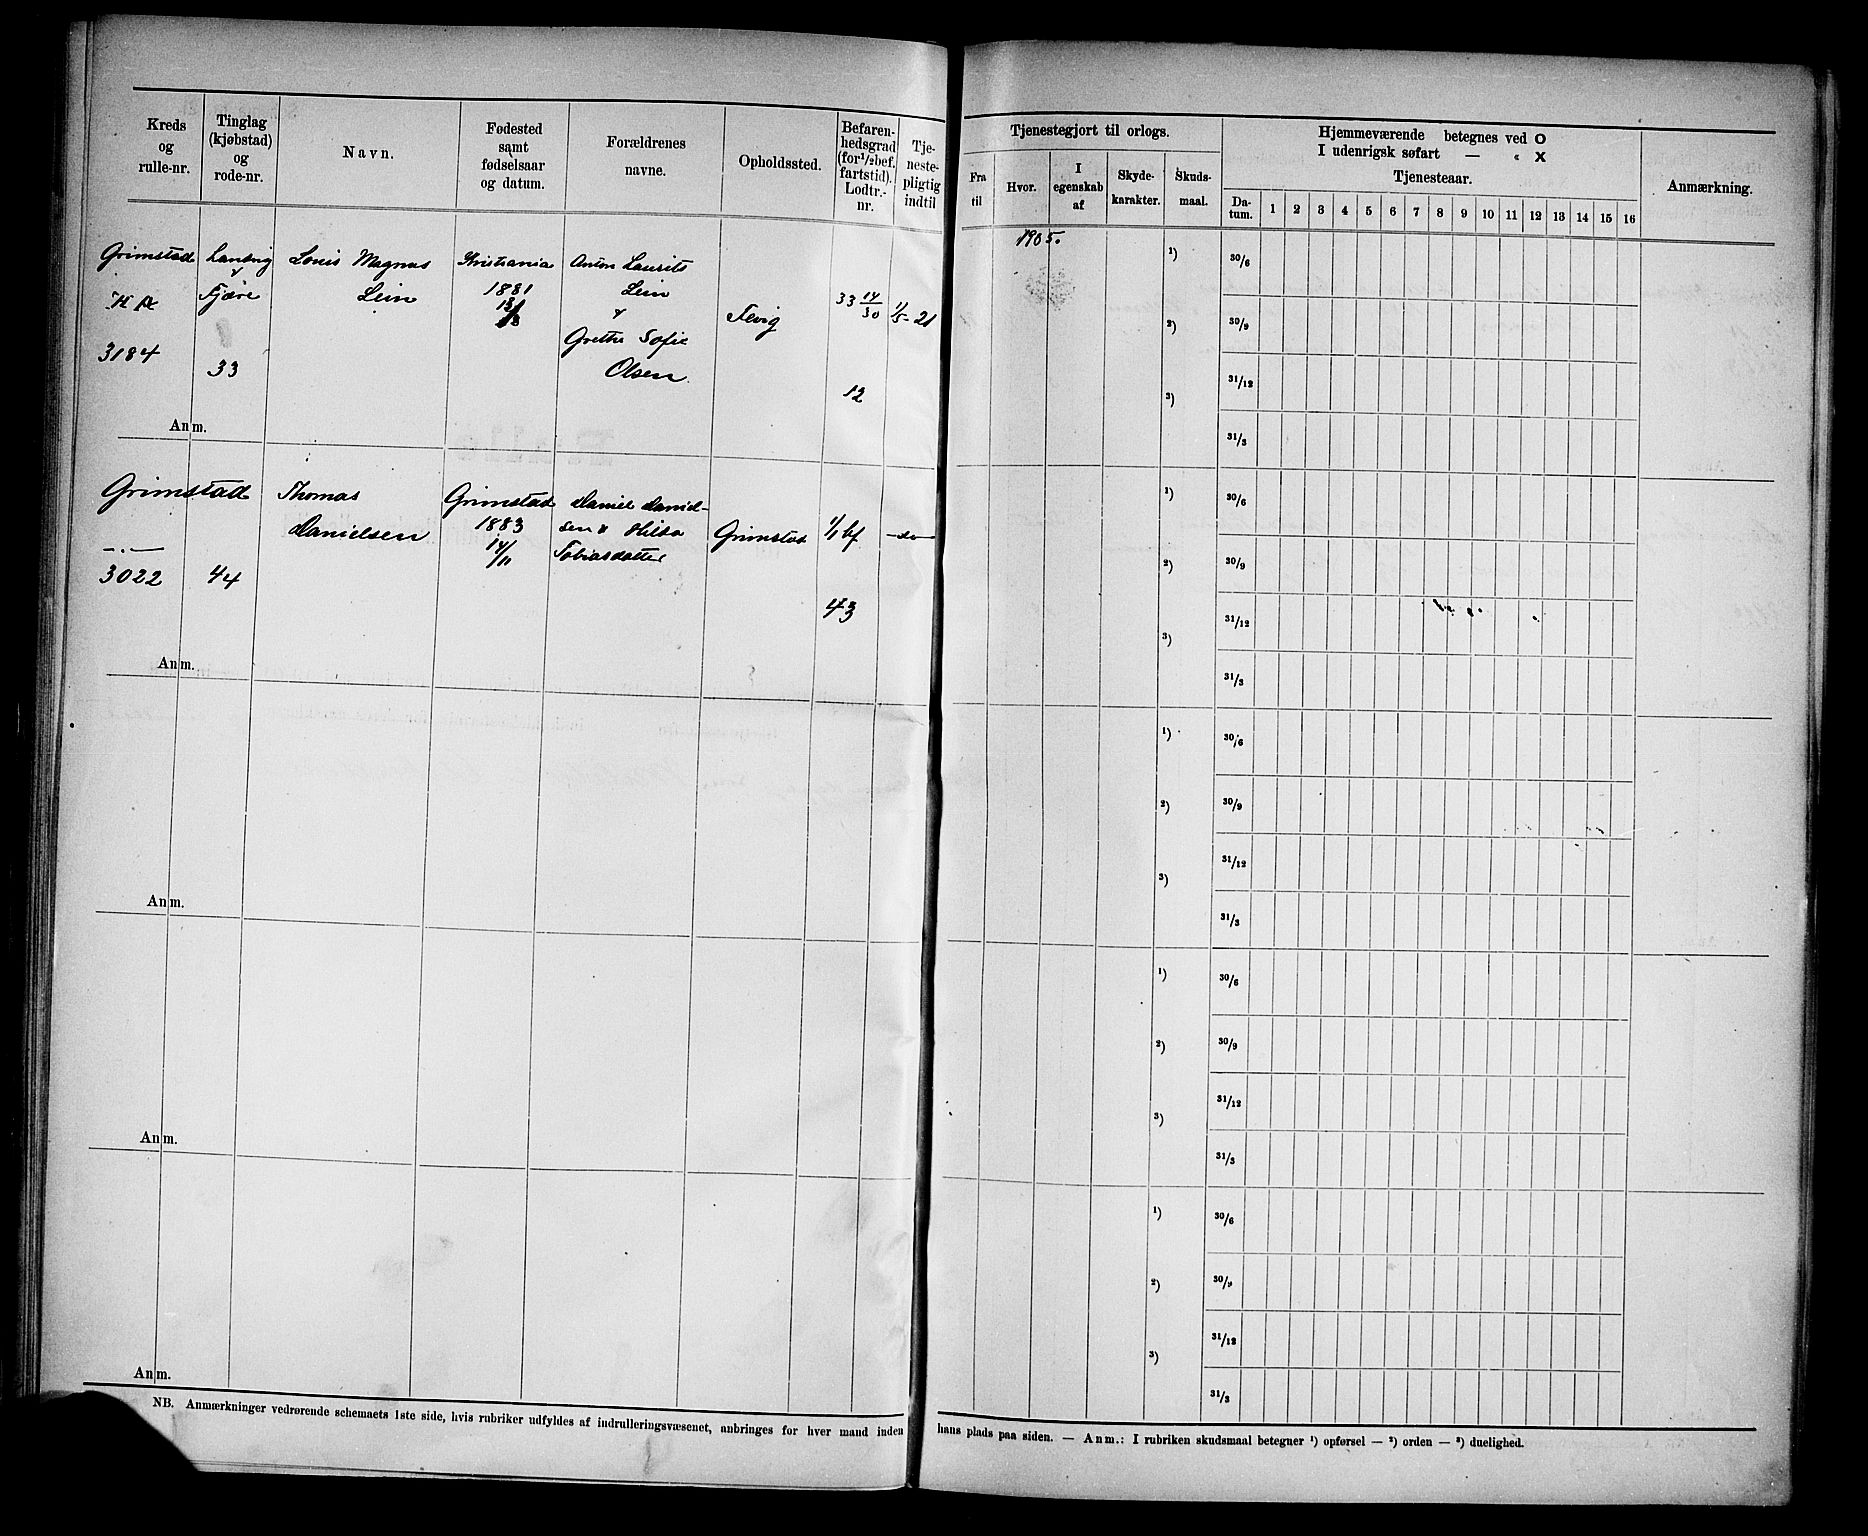 Kreds
og
rulle-nr.
Tinglag
(kjøbstad)
og
rode-nr.
Navn.
Fødested
samt
fødselsaar
og datum.
Forældrenes
navne.
Opholdssted.
Befaren-
hedsgrad
(for 1/2 bef.
fartstid).
Lodtr.-
nr.
Tje-
neste-
pligtig
indtil
Tjenestegjort til orlogs.
Fra
til
Hvor.
I
egenskab
af
Skyde-
karakter.
Skuds-
maal.
Hjemmeværende betegnes ved O
I udenrigsk søfart — " X
Tjenesteaar.
Da-
tum. 1 2 3 4 5 6 7 8 9 10 11 12 13 14 15 16
Anmærkning.
Grimstad
3184
Landvig
Fjære
33
Louis Magnus
Lein
Kristiania
1881
Anton Laurits
Lein
Grethe Sofie
Olsen
Fevig
33 14/30
12
1/5-21
Anm.
1905.
1)
2)
3)
30/6
30/9
31/12
31/3
Grimstad
—.—
3022
44
Thomas
Danielsen
Grimstad
1883
14/11
Daniel Daniel-
sen & Hilda
Tobiasdatter
Grimstad
1/1 bf
43
—do—
Anm.
1)
2)
3)
30/6
30/9
31/12
31/3
Anm.
1)
2)
3)
30/6
30/9
31/12
31/3
Anm.
1)
2)
3)
30/6
30/9
31/12
31/3
Anm.
1)
2)
3)
30/6
30/9
31/12
31/3
NB. Anmærkninger vedrørende schemaets 1ste side, hvis rubriker udfyldes af indrulleringsvæsenet, anbringes for hver mand inden
hans plads paa siden. — Anm.: I rubriken skudsmaal betegner 1) opførsel — 2) orden — 3) duelighed.